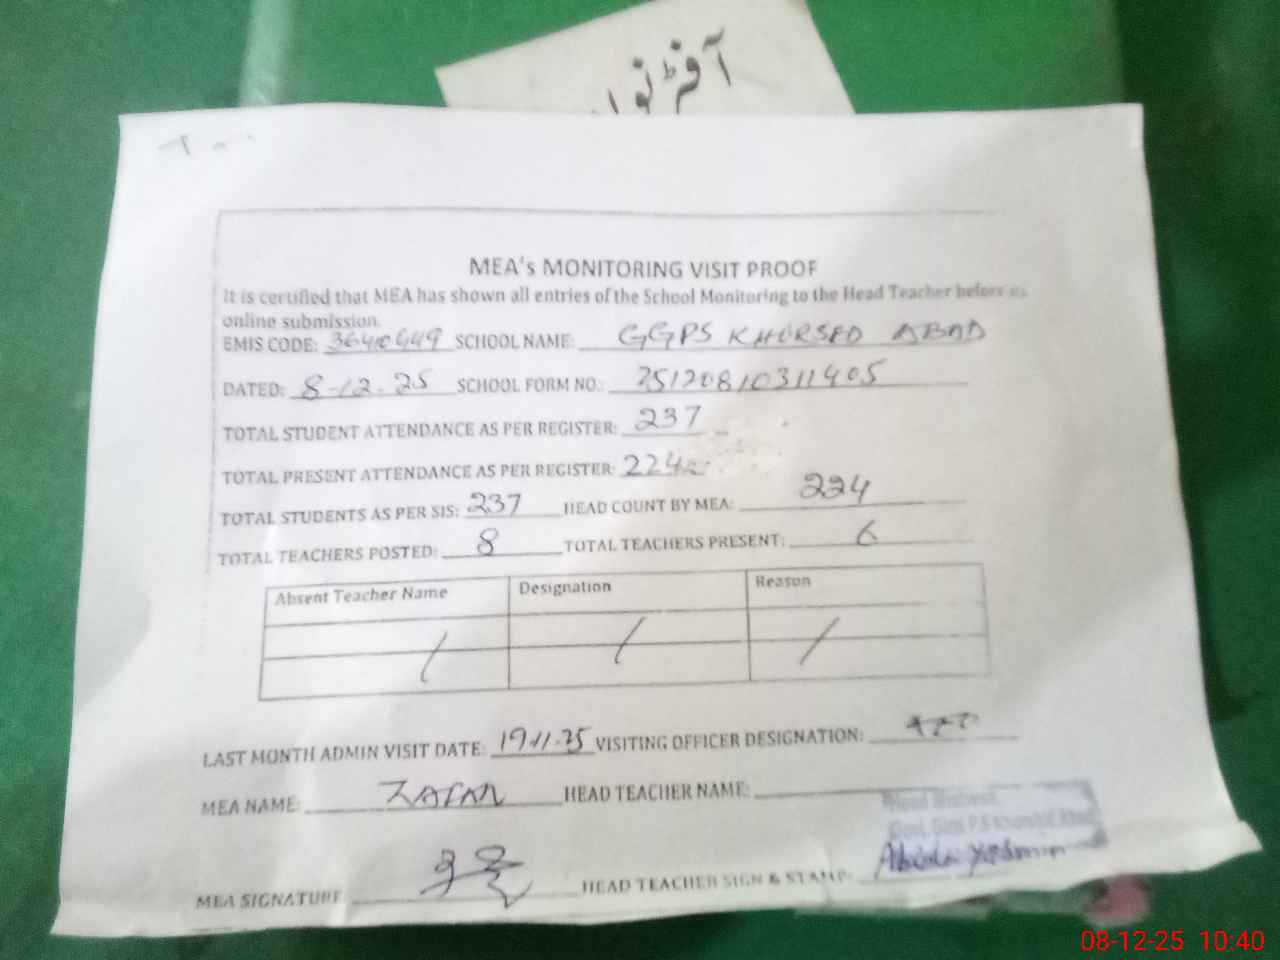 آفٹر نو
MEA's MONITORING VISIT PROOF
It is certified that MEA has shown all entries of the School Monitoring to the Head Teacher before its
online submission.
EMIS CODE: 36410649 SCHOOL NAME: GGPS KHURSED ABAD
DATED: 8-12-25 SCHOOL FORM NO.: 25120810311405
TOTAL STUDENT ATTENDANCE AS PER REGISTER: 237
TOTAL PRESENT ATTENDANCE AS PER REGISTER: 224
TOTAL STUDENTS AS PER SIS: 237 HEAD COUNT BY MEA: 224
TOTAL TEACHERS POSTED: 8 TOTAL TEACHERS PRESENT: 6
Absent Teacher Name Designation Reason
/ / /
LAST MONTH ADMIN VISIT DATE: 19-11-25 VISITING OFFICER DESIGNATION:
MEA NAME: ZAFAR HEAD TEACHER NAME:
Head Mistress
Govt. Girls P.S Khurshid Abad
MEA SIGNATURE HEAD TEACHER SIGN & STAMP: Abida Yasmin
08-12-25 10:40